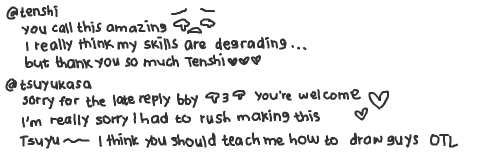 @tenshi
you call this amazing
I really think my skills are degrading...
but thank you so much Tenshi ♥♥♥
@tsuyukasa
sorry for the late reply bby 3 you're welcome ♡
I'm really sorry I had to rush making this ♡
Tsuyu~~ I think you should teach me how to draw guys OTL